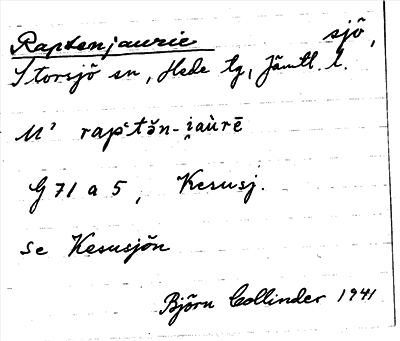 Raptenjaurie sjö,
Storsjö sn, Hede tg, Jämtl. l.
M' rap'tə̆n-i̯aùrē
G 71 a 5, Kesusj.
se Kesusjön
Björn Collinder 1941